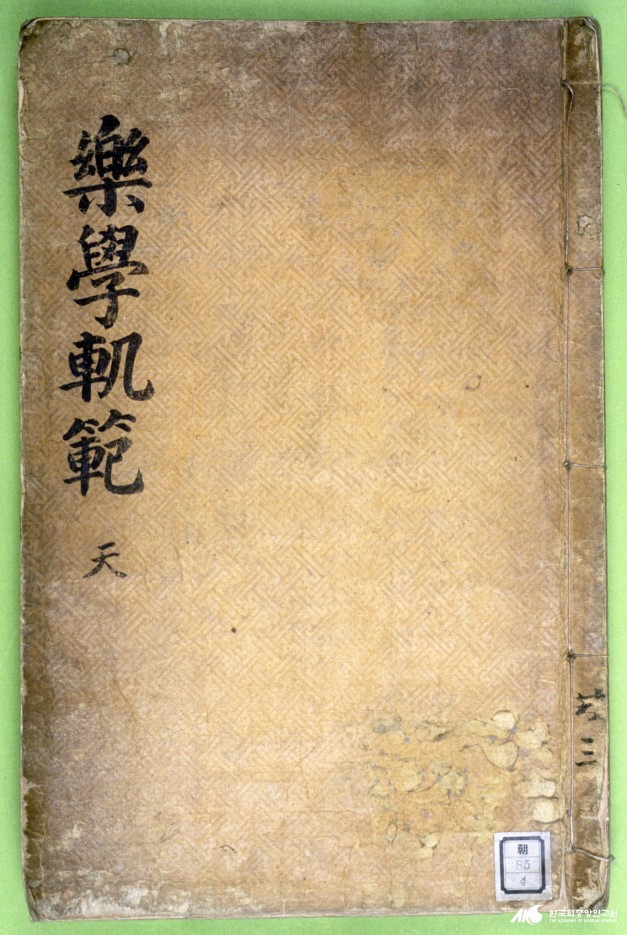 樂學軌範
天
共三
朝
85
4
한국학중앙연구원
THE ACADEMY OF KOREAN STUDIES